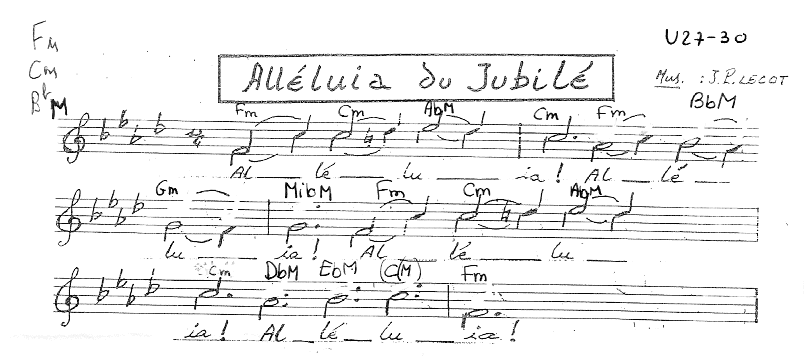 Fm
U27-30
Alléluia du Jubilé
Cm
Mus. : J.P. LECOT
BbM
Fm Cm AbM Cm Fm BbM
Al _ lé _ lu _ ia ! Al _ lé _
Gm MibM Fm Cm AbM
lu _ ia ! Al _ lé _ lu _
Cm DbM EbM (CM) Fm
ia ! Al _ lé _ lu _ ia !